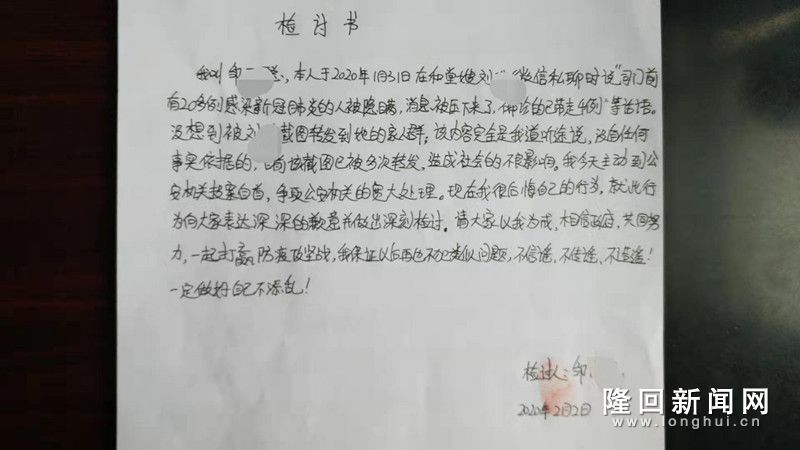 检讨书
我叫邹 ,本人于2020年1月31日在和堂嫂刘 "微信私聊时说"司门前
有20多例感染新冠肺炎的人被隐瞒,消息被压下来了, 确诊的已带走4例"等话语。
没想到被刘 截图转发到她的家人群;该内容完全是我道听途说,没有任何
事实依据的, 目前该截图已被多次转发,造成社会的不良影响。我今天主动到公
安机关投案自首,争取公安机关的宽大处理。现在我很后悔自己的行为,就此行
为向大家表达深深的歉意并做出深刻检讨。请大家以我为戒,相信政府,共同努
力,一起打赢防疫攻坚战,我保证以后再也不犯类似问题,不信谣、不传谣、不造谣!
一定做好自己不添乱!
检讨人:邹
2020年2月2日
隆回新闻网
www.longhui.cn